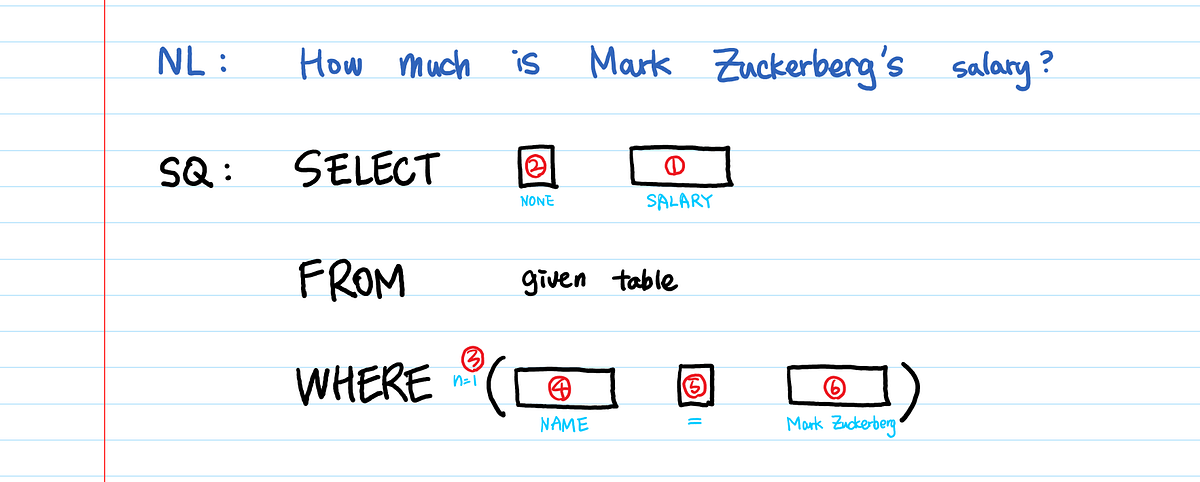 NL: How much is Mark Zuckerberg's salary?
SQ: SELECT ② ①
NONE SALARY
FROM given table
WHERE ③ n=1 ( ④ ⑤ ⑥ )
NAME = Mark Zuckerberg